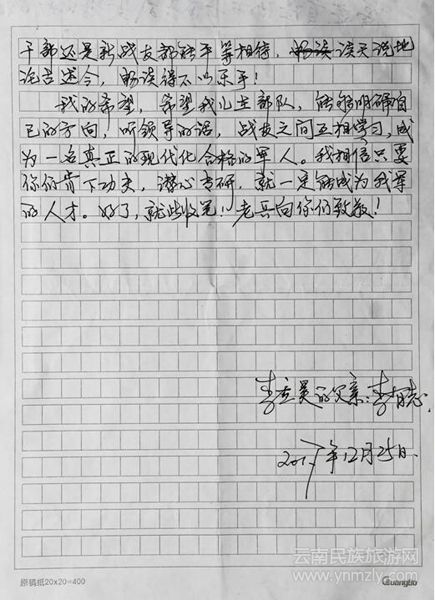 干部还是新战友都能平等相待,畅谈谈天说地
论古述今,畅谈得不亦乐乎!
我的希望,希望我儿在部队,能够明确自
己的方向,听领导的话,战友之间互相学习,成
为一名真正的现代化合格的军人。我相信只要
你们肯下功夫,潜心专研,就一定能成为我军
的人才。好了,就此收笔!老兵向你们致敬!
李 昊的父亲:李 志
2017年12月25日
原稿纸20x20=400
Guangbo
云南民族旅游网
www.ynmzly.com